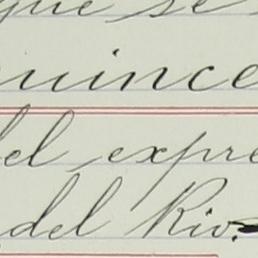 que se
quince
del expre
del Rio.